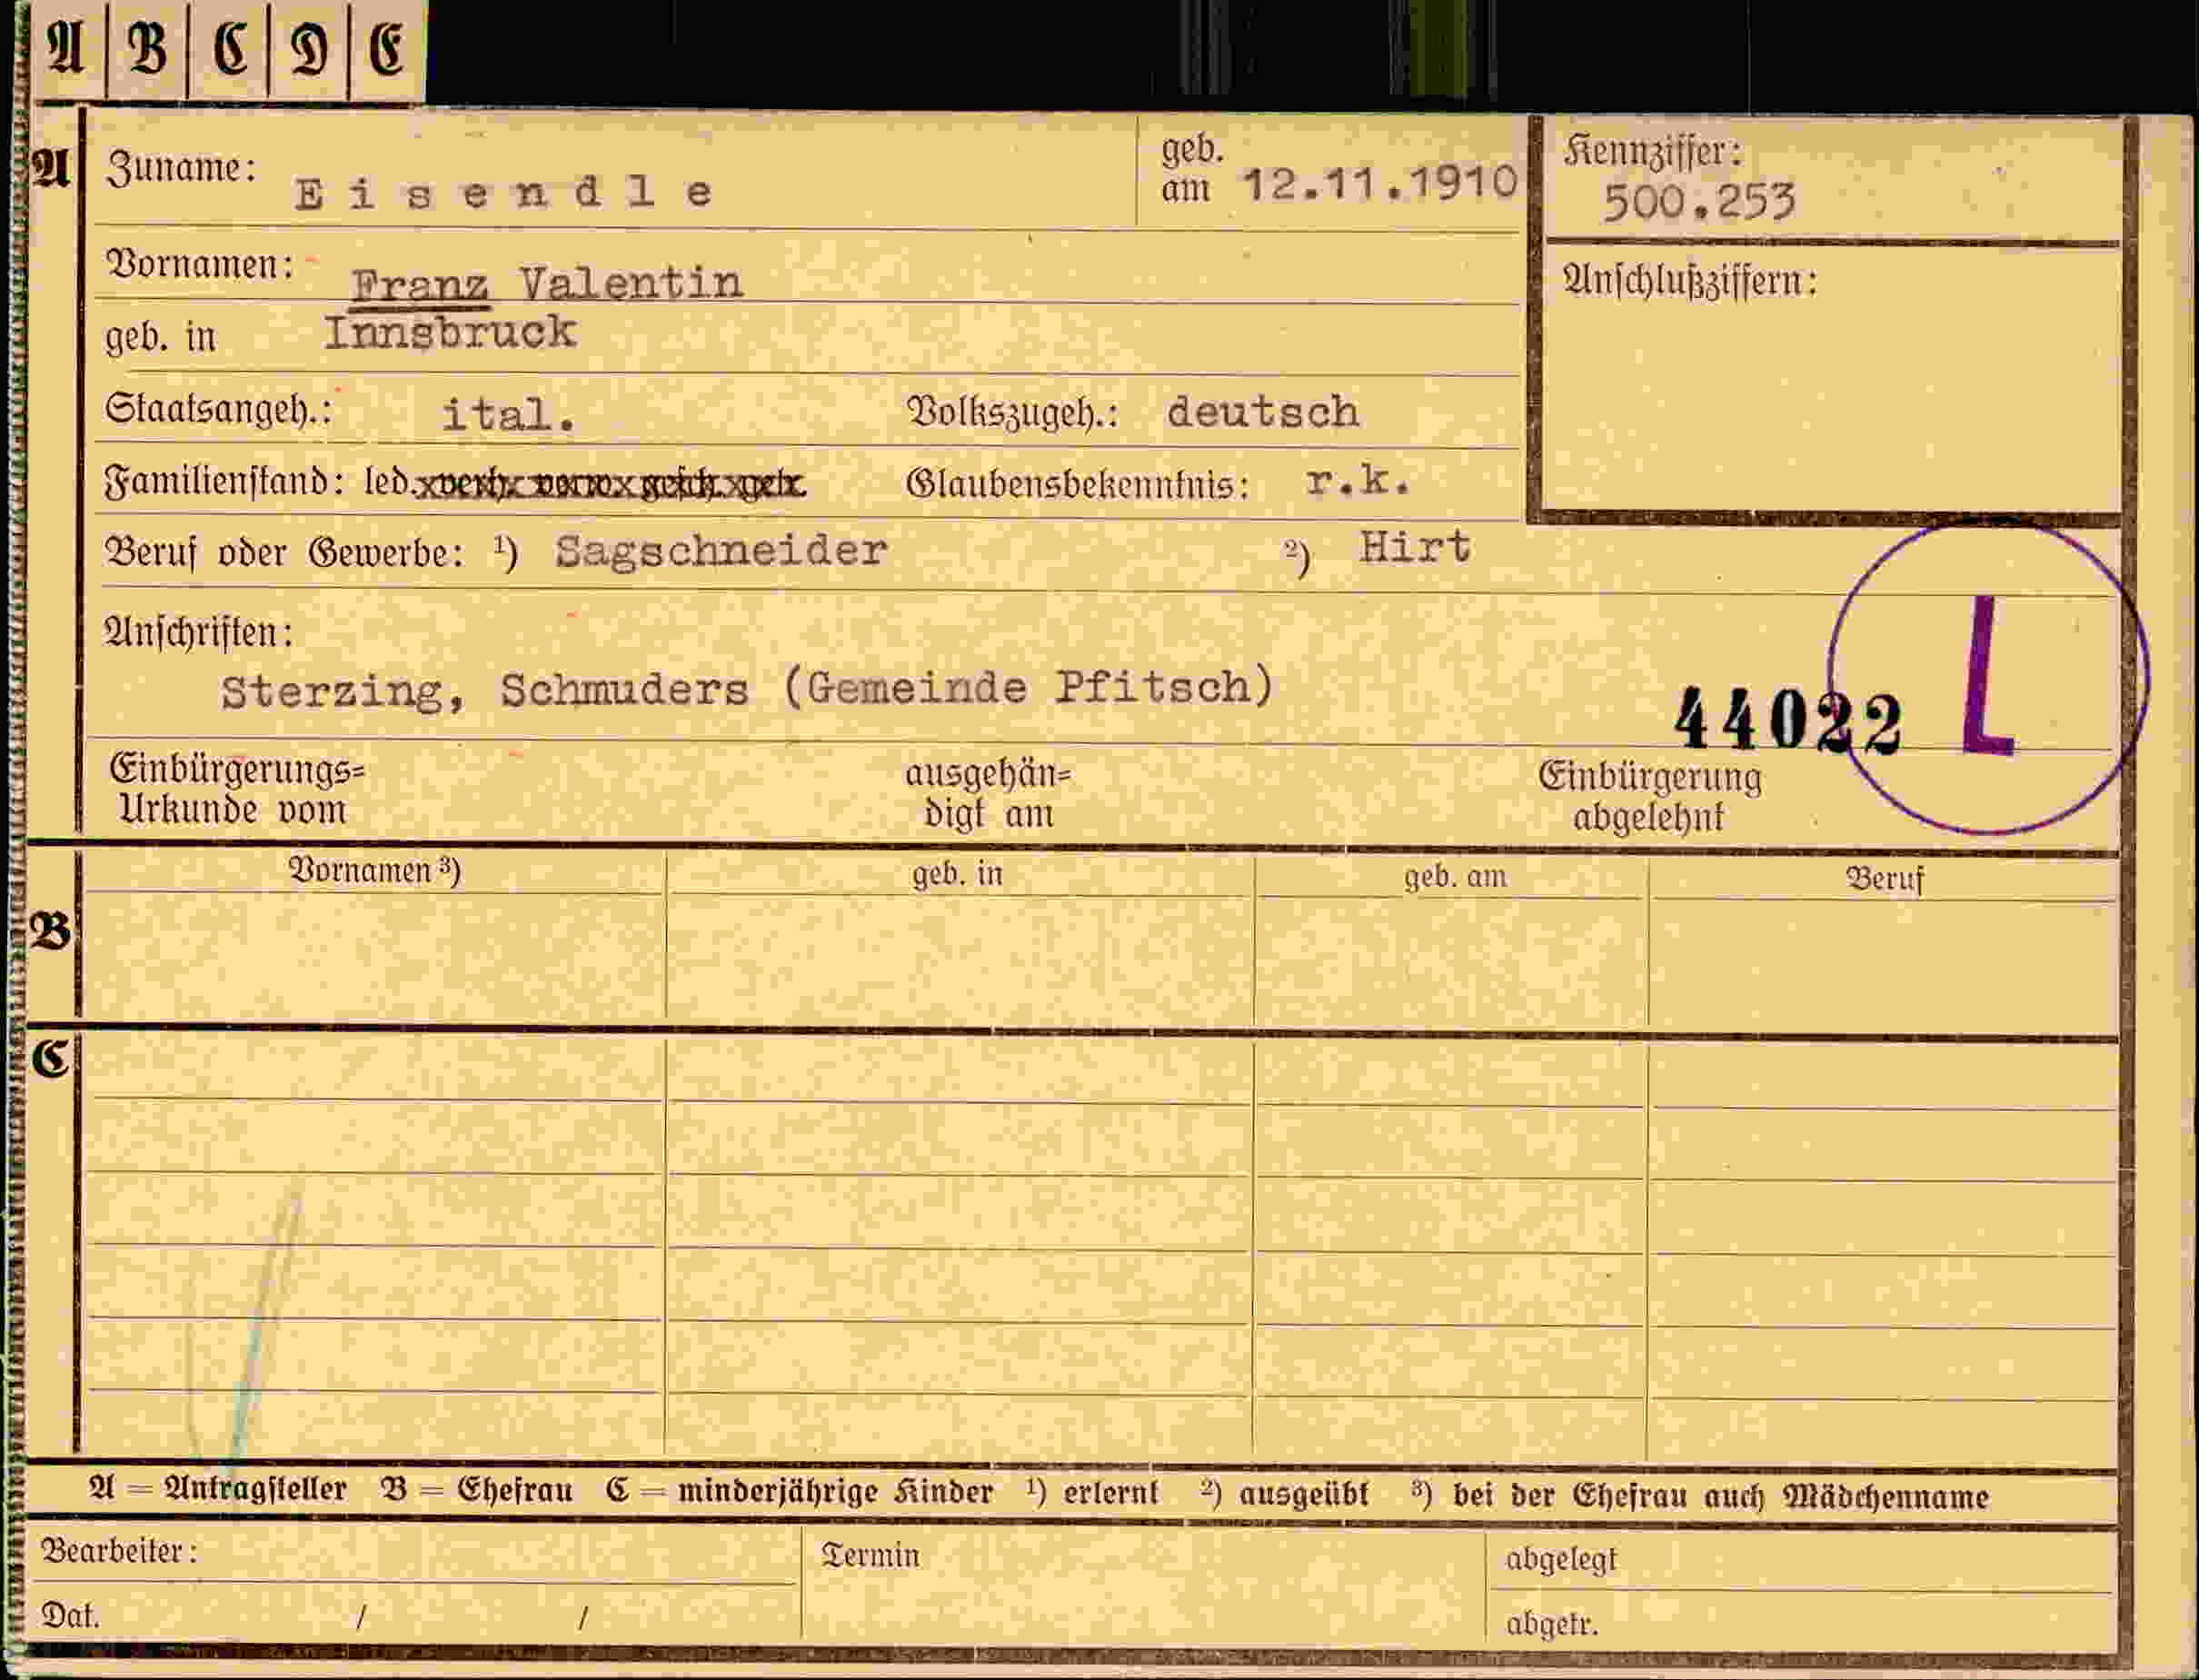 A B C D E
A Zuname: Eisendle geb. am 12.11.1910
Kennziffer: 500.253
Vornamen: Franz Valentin
Anschlußziffern:
geb. in Innsbruck
Staatsangeh.: ital. Volkszugeh.: deutsch
Familienstand: led. verh. verw. gesch. getr. Glaubensbekenntnis: r.k.
Beruf oder Gewerbe: ¹) Sagschneider ²) Hirt
Anschriften:
Sterzing, Schmuders (Gemeinde Pfitsch)
44022 L
Einbürgerungs= ausgehän= Einbürgerung
Urkunde vom digt am abgelehnt
Vornamen ³) geb. in geb. am Beruf
B
C
A = Antragsteller B = Ehefrau C = minderjährige Kinder ¹) erlernt ²) ausgeübt ³) bei der Ehefrau auch Mädchenname
Bearbeiter: Termin abgelegt
Dat. / / abgetr.